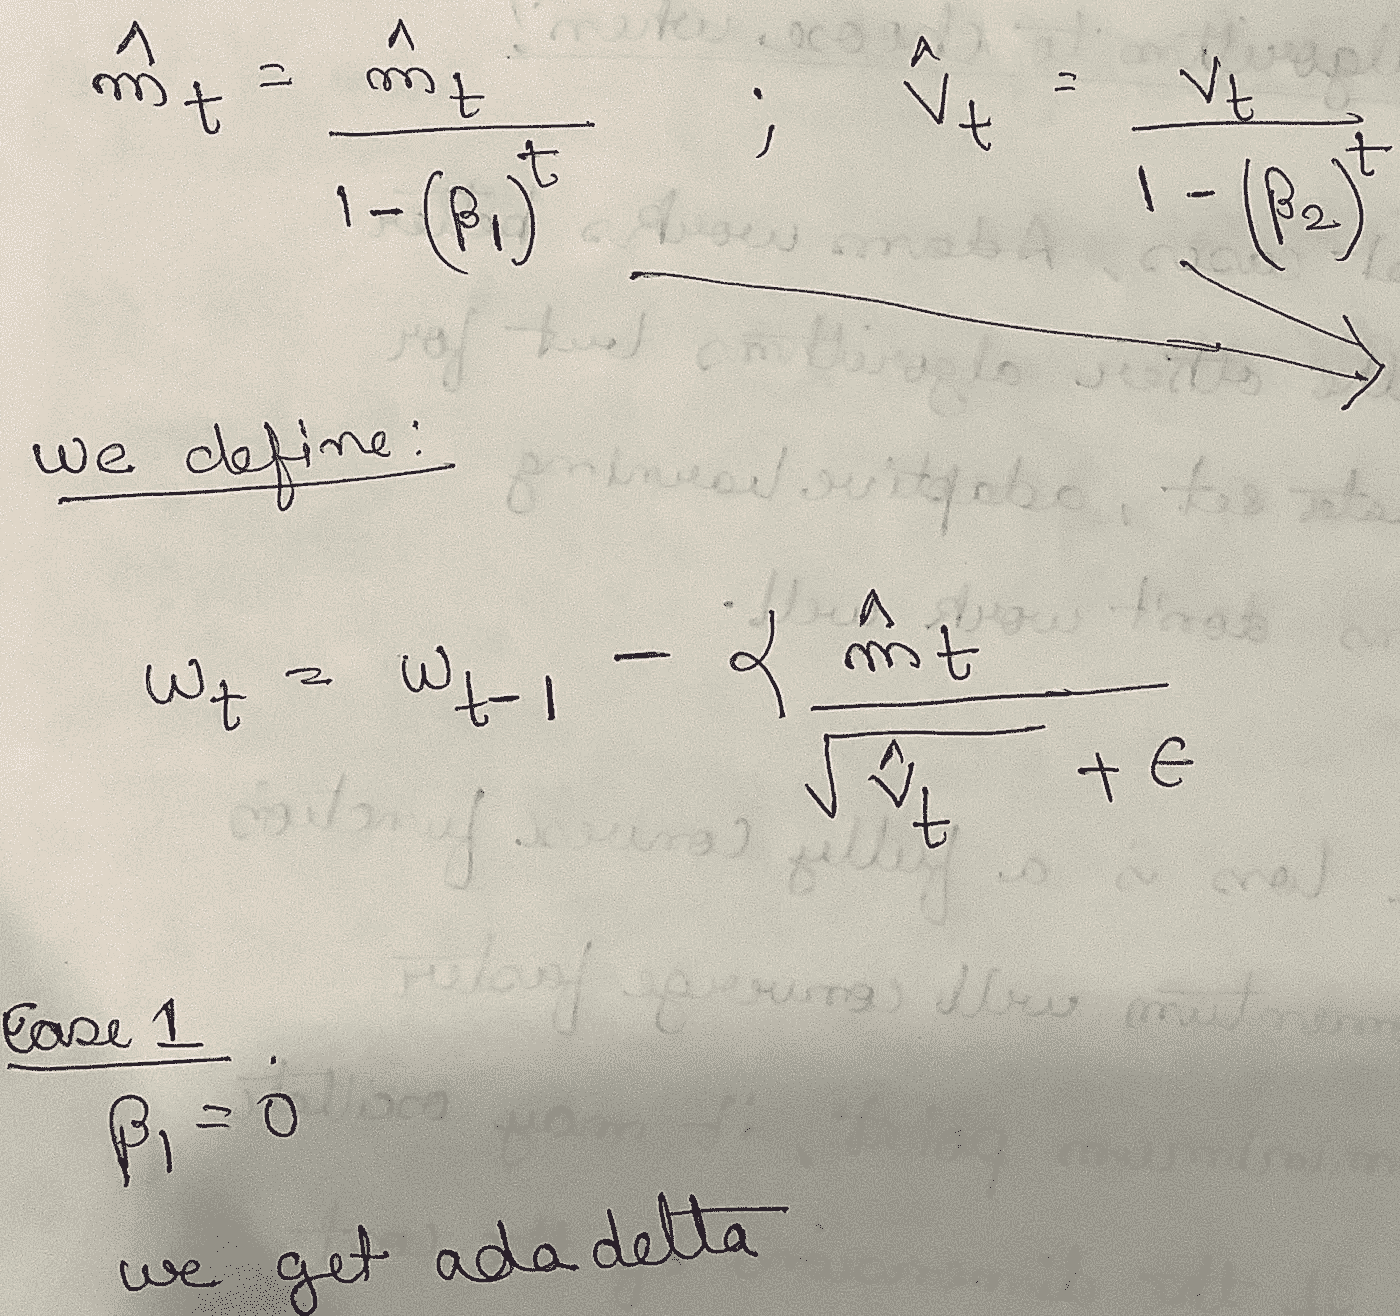 m̂t = m̂t / 1-(β1)^t ; v̂t = vt / 1-(β2)^t
we define:
wt = wt-1 - α m̂t / √v̂t + ϵ
Case 1
β1 = 0
we get ada delta